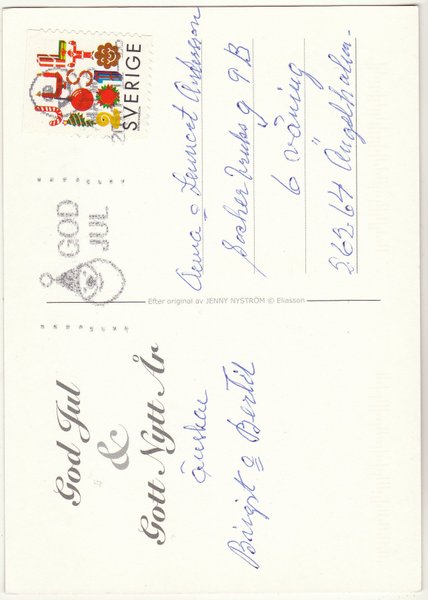 God Jul
&
Gott Nytt År
önskar
Birgit o Bertil
Efter original av JENNY NYSTRÖM © Eliasson
GOD
JUL
SVERIGE
Anna o Lennart Andersson
Sockerbruksg 9B
6 våning
262 64 Ängelholm